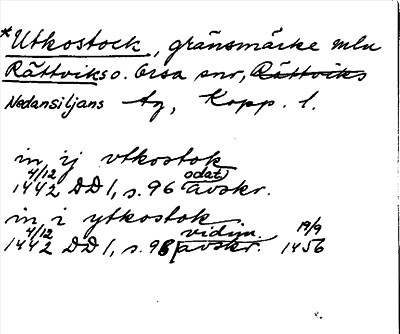 *Utkostock, gränsmärke mln
Rättviks o. Orsa snr, Rättviks
Nedansiljans tg, Kopp. l.
in ij vtkostok
1442 4/12 DD 1, s. 96 odat. avskr.
in i ytkostok
1442 4/12 DD 1, s. 98 vidim. avskr. 19/9 1456